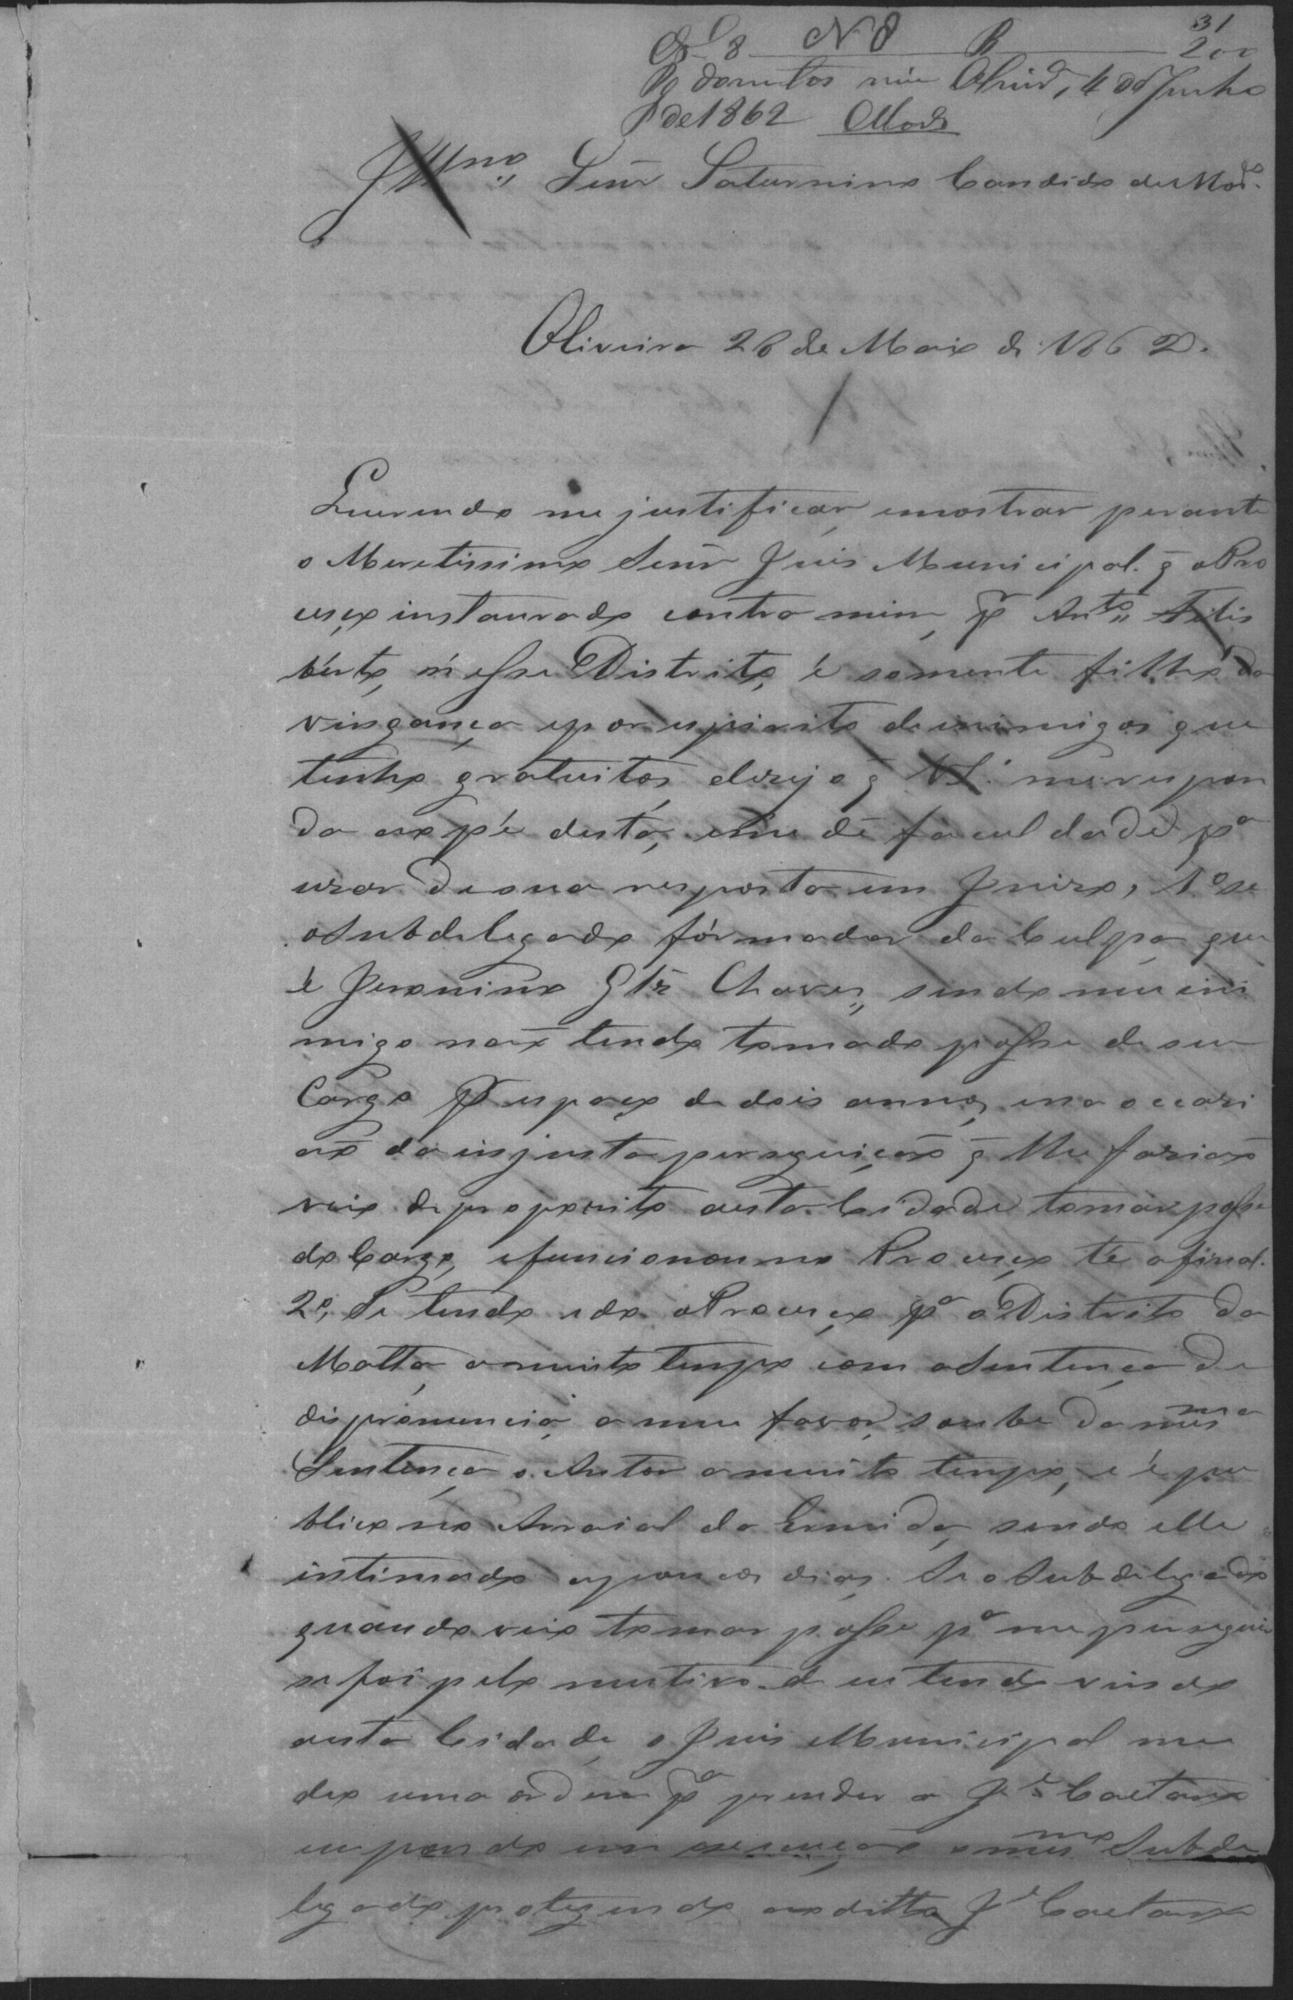 31
Nº 8 200
Pg duzentos réis Olivrª, 4 de Junho
de 1862
Illmo. Senr Saturnino Candido de
Oliveira 26 de Maio de 1862.
Querendo me justificar, emostrar perante
o Meretissimo Senr Juis Municipal. q̃ o Pro
ceço instaurado contra mim, pr Anto. Felis
bérto, n'esse Distrito, é somente filho da
vingança epor espirito de inimigos que
tenho gratuitos, dezejo q̃ VS.ª me respon
da ao pé desta, eme dê faculdade pª
uzar de sua resposta em Juizo, 1º se
o Subdelegado fórmador da Culpa que
é Jeronimo Chaves, sendo meu ini
migo naõ tendo tomado posse de seu
Cargo pr espaço de dois annos, e na occazi
aõ da injusta perseguiçaõ q̃ Me faziaõ
veio de proposito a esta Cidade tomar posse
do Cargo, efuncionou no Proceço té ofinal.
2º, Se tendo ido o Proceço pª o Distrito da
Matta, a muito tempo com a Sentença de
dispronuncia a meu favor, soube da mesma
Sentença o Autor a muito tempo, e é pu
blico no Arraial da Ermida, sendo elle
intimado a poucos dias. Se o Subdelegado
quando veio tomar posse pª me perseguir
se foi pelo mutivo de eu tendo vindo
a esta Cidade, o Juis Municipal me
deo uma ordem pª prender a Je Caetano
eu pondo em execuçaõ o mesmo Subde
legado protegendo ao ditto Je Caetano